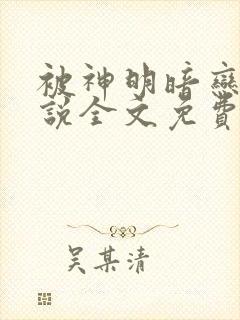 被神明暗戀
說全文免費
吳某清